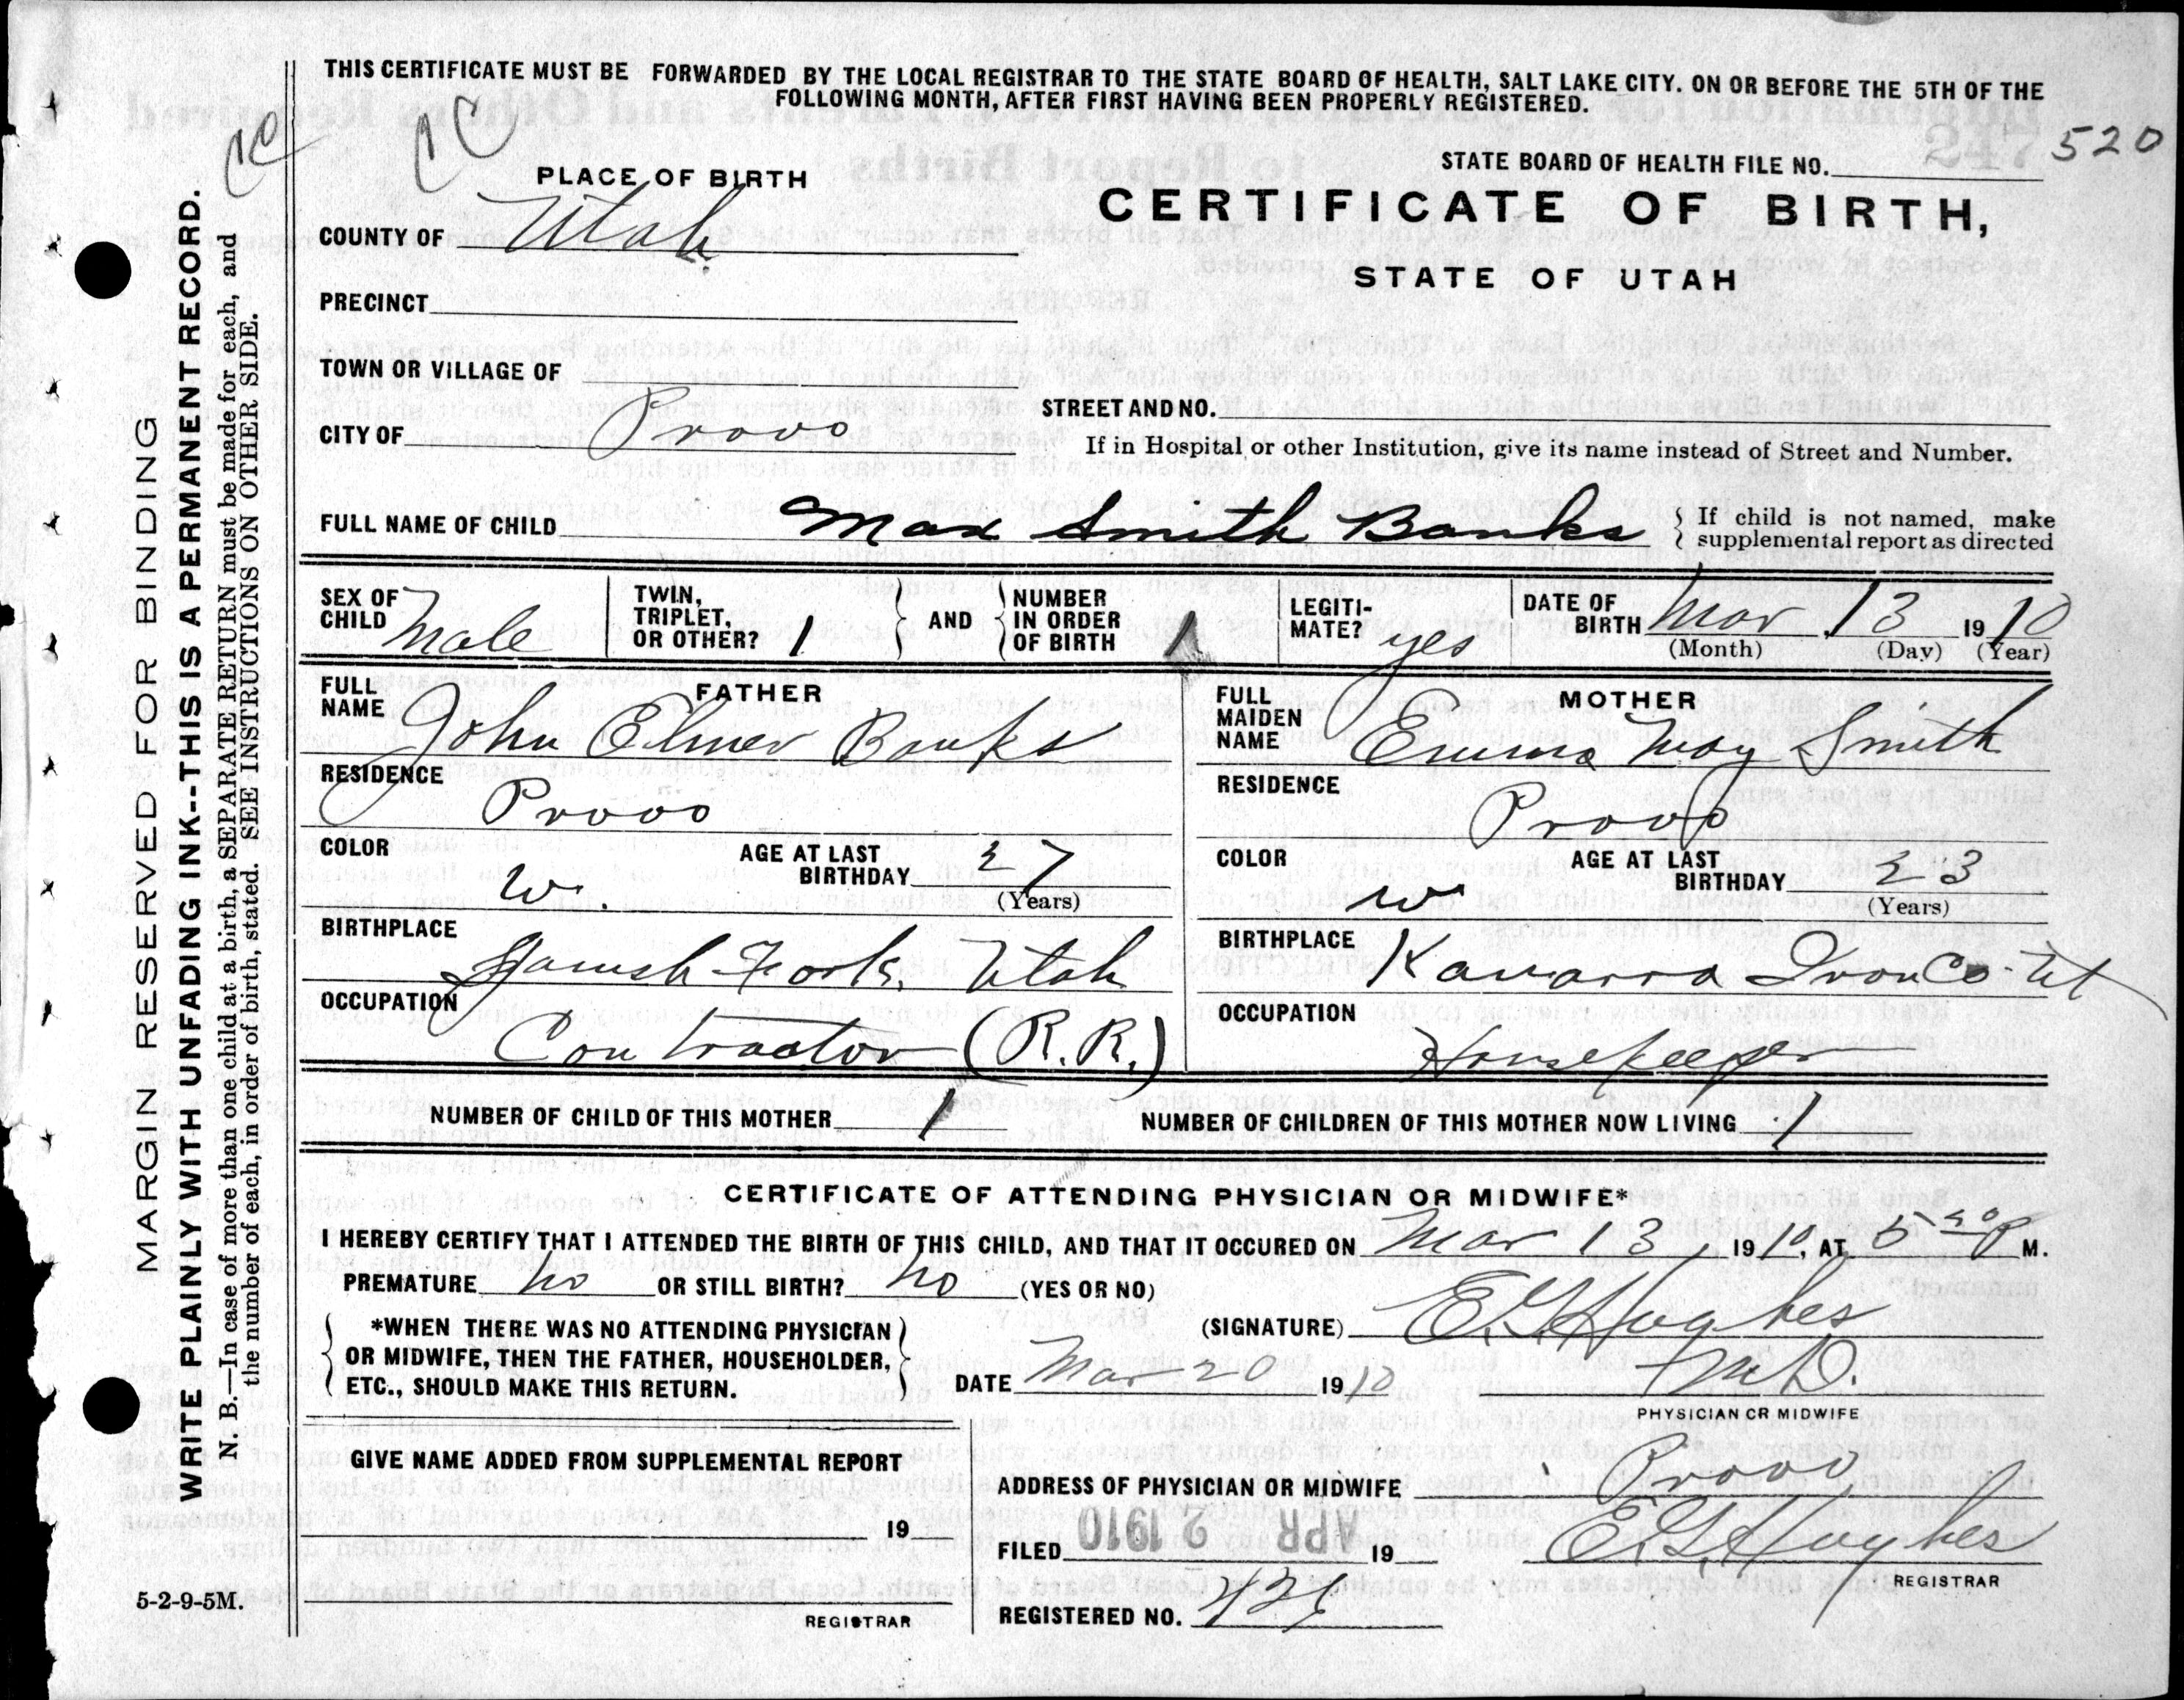 THIS CERTIFICATE MUST BE FORWARDED BY THE LOCAL REGISTRAR TO THE STATE BOARD OF HEALTH, SALT LAKE CITY. ON OR BEFORE THE 5TH OF THE
FOLLOWING MONTH, AFTER FIRST HAVING BEEN PROPERLY REGISTERED.
STATE BOARD OF HEALTH FILE NO. 520
PLACE OF BIRTH
CERTIFICATE OF BIRTH,
STATE OF UTAH
COUNTY OF Utah
PRECINCT
TOWN OR VILLAGE OF
CITY OF Provo
STREET AND NO.
If in Hospital or other Institution, give its name instead of Street and Number.
FULL NAME OF CHILD Max Smith Banks
If child is not named, make
supplemental report as directed
SEX OF CHILD Male
TWIN, TRIPLET, OR OTHER? 1
AND
NUMBER IN ORDER OF BIRTH 1
LEGITI-MATE? yes
DATE OF BIRTH Mar 13 1910
(Month) (Day) (Year)
FATHER
FULL NAME John Elmer Banks
RESIDENCE Provo
COLOR W.
AGE AT LAST BIRTHDAY 27
(Years)
BIRTHPLACE Spanish Fork, Utah
OCCUPATION Contractor (R.R.)
MOTHER
FULL MAIDEN NAME Emma May Smith
RESIDENCE Provo
COLOR W
AGE AT LAST BIRTHDAY 23
(Years)
BIRTHPLACE Kanarra Iron Co. Ut
OCCUPATION Housekeeper
NUMBER OF CHILD OF THIS MOTHER 1
NUMBER OF CHILDREN OF THIS MOTHER NOW LIVING 1
CERTIFICATE OF ATTENDING PHYSICIAN OR MIDWIFE*
I HEREBY CERTIFY THAT I ATTENDED THE BIRTH OF THIS CHILD, AND THAT IT OCCURED ON Mar 13, 1910, AT 5 30 P M.
PREMATURE no OR STILL BIRTH? no (YES OR NO)
*WHEN THERE WAS NO ATTENDING PHYSICIAN
OR MIDWIFE, THEN THE FATHER, HOUSEHOLDER,
ETC., SHOULD MAKE THIS RETURN.
(SIGNATURE) E.G. Hughes
M.D.
DATE Mar 20 1910
PHYSICIAN OR MIDWIFE
GIVE NAME ADDED FROM SUPPLEMENTAL REPORT
19
REGISTRAR
ADDRESS OF PHYSICIAN OR MIDWIFE Provo
FILED APR 2 1910 19
E.G. Hughes
REGISTRAR
REGISTERED NO.
5-2-9-5M.
MARGIN RESERVED FOR BINDING
WRITE PLAINLY WITH UNFADING INK--THIS IS A PERMANENT RECORD.
N. B.—In case of more than one child at a birth, a SEPARATE RETURN must be made for each, and
the number of each, in order of birth, stated. SEE INSTRUCTIONS ON OTHER SIDE.